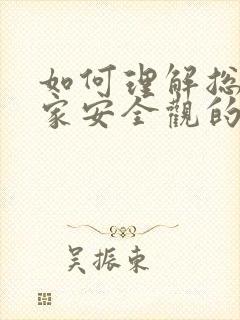 如何理解总
家安全觀的
吴振东